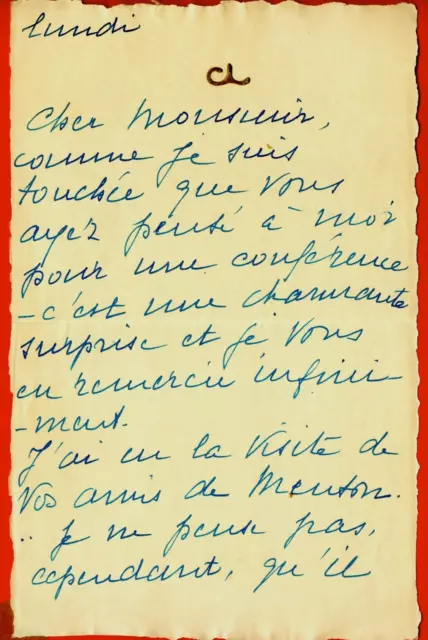 lundi
Cher Monsieur,
comme je suis
touchée que vous
ayez pensé à moi
pour une conférence
- c'est une charmante
surprise et je vous
en remercie infini
-ment.
J'ai eu la visite de
vos amis de Menton.
.. je ne pense pas,
cependant, qu'il